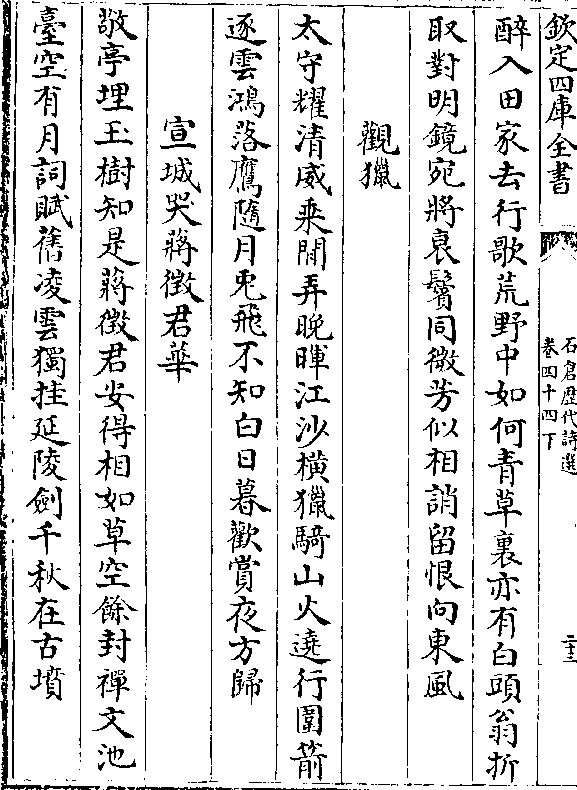 欽定四庫全書
石倉歷代詩選
卷四十四下
二十三
醉入田家去行歌荒野中如何青草裏亦有白頭翁折
取對明鏡宛將衰鬢同微芳似相誚留恨向東風
觀獵
太守耀清威乗閒弄晚暉江沙横獵騎山火遶行圍箭
逐雲鴻落鷹隨月兎飛不知白日暮歡賞夜方歸
宣城哭蔣徴君華
敬亭埋玉樹知是蔣徴君安得相如草空餘封禪文池
臺空有月詞賦舊凌雲獨挂延陵劍千秋在古墳